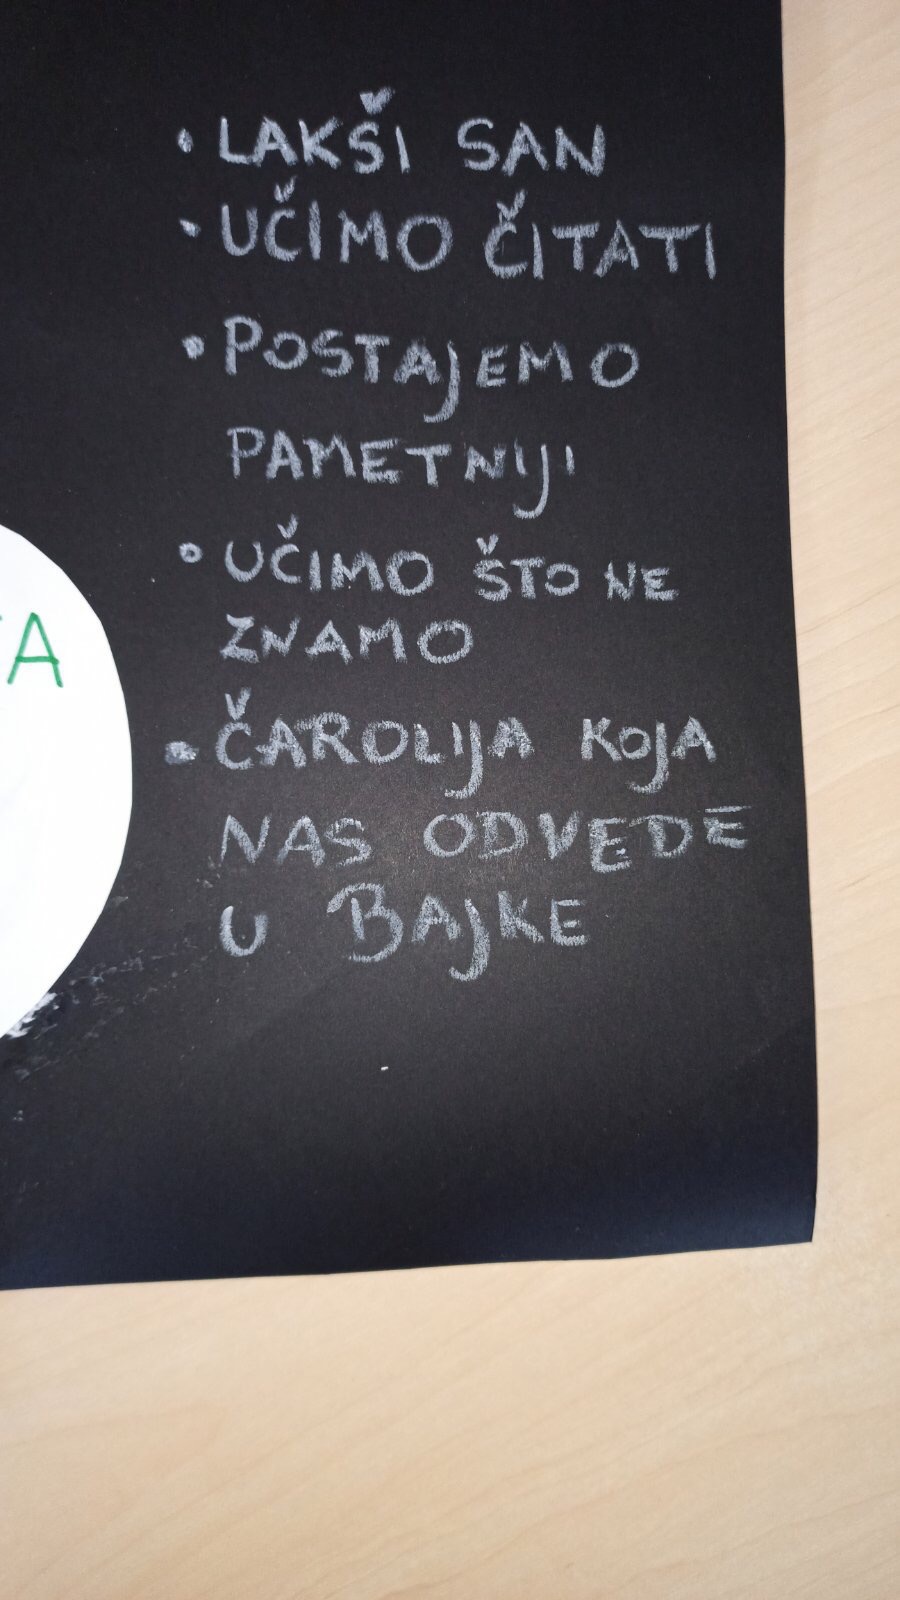 • LAKŠI SAN
• UČIMO ČITATI
• POSTAJEMO
PAMETNIJI
• UČIMO ŠTO NE
ZNAMO
• ČAROLIJA KOJA
NAS ODVEDE
U BAJKE